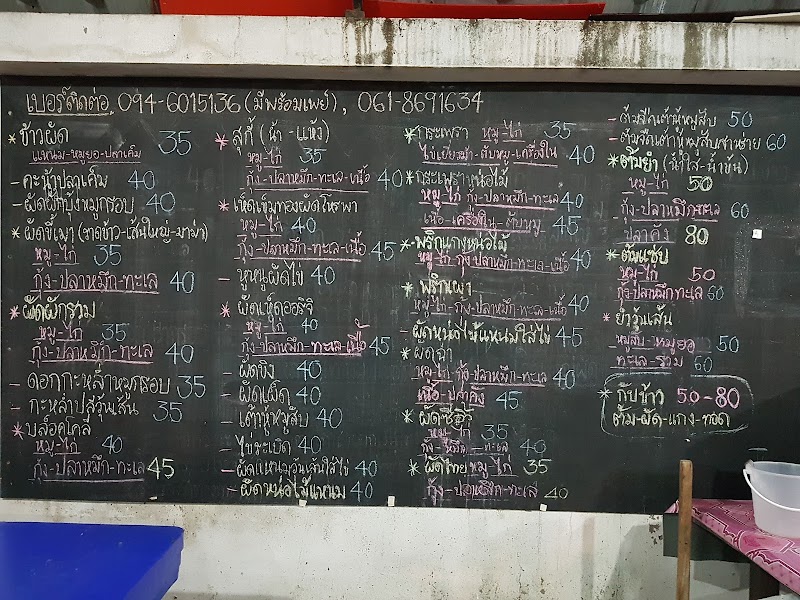 เบอร์ติดต่อ 094-6015136 (มีพร้อมเพย์), 061-8691634
* ข้าวผัด 35
แหนม-หมูยอ-ปลาเค็ม
- คะน้าปลาเค็ม 40
- ผัดผักบุ้งหมูกรอบ 40
* ผัดขี้เมา (ราดข้าว-เส้นใหญ่-มาม่า)
หมู-ไก่ 35
กุ้ง-ปลาหมึก-ทะเล 40
* ผัดผักรวม
หมู-ไก่ 35
กุ้ง-ปลาหมึก-ทะเล 40
- ดอกกะหล่ำหมูกรอบ 35
- กะหล่ำปลีวุ้นเส้น 35
* บล็อคโคลี่
หมู-ไก่ 40
กุ้ง-ปลาหมึก-ทะเล 45
* สุกี้ (น้ำ-แห้ง)
หมู-ไก่ 35
กุ้ง-ปลาหมึก-ทะเล-เนื้อ 40
* เห็ดเข็มทองผัดโหระพา
หมู-ไก่ 40
กุ้ง-ปลาหมึก-ทะเล-เนื้อ 45
- หูหนูผัดไข่ 40
* ผัดเห็ดออริจิ
หมู-ไก่ 40
กุ้ง-ปลาหมึก-ทะเล-เนื้อ 45
- ผัดขิง 40
- ผัดเผ็ด 40
- เต้าหู้หมูสับ 40
- ไข่ระเบิด 40
- ผัดแหนมวุ้นเส้นใส่ไข่ 40
- ผัดหน่อไม้แหนม 40
* กระเพรา หมู-ไก่ 35
ไข่เยี่ยวม้า-ตับหมู-เครื่องใน 40
* กระเพราหน่อไม้
หมู-ไก่ กุ้ง-ปลาหมึก-ทะเล 40
เนื้อ-เครื่องใน-ตับหมู 45
* พริกแกงหน่อไม้
หมู-ไก่ กุ้ง-ปลาหมึก-ทะเล-เนื้อ 40
* พริกเผา
หมู-ไก่ กุ้ง-ปลาหมึก-ทะเล-เนื้อ 40
- ผัดหน่อไม้แหนมใส่ไข่ 45
* ผัดฉ่า
หมู-ไก่ กุ้ง-ปลาหมึก-ทะเล 40
เนื้อ-ปลาคัง 45
* ผัดซีอิ๊ว
หมู-ไก่ 35
กุ้ง-หมึก-ทะเล 40
* ผัดไทย หมู-ไก่ 35
กุ้ง-ปลาหมึก-ทะเล 40
- ต้มจืดเต้าหู้หมูสับ 50
- ต้มจืดเต้าหู้หมูสับสาหร่าย 60
* ต้มยำ (น้ำใส-น้ำข้น)
หมู-ไก่ 50
กุ้ง-ปลาหมึกทะเล 60
ปลาคัง 80
* ต้มแซ่บ
หมู-ไก่ 50
กุ้ง-ปลาหมึกทะเล 60
* ยำวุ้นเส้น
หมูสับ-หมูยอ 50
ทะเล-รวม 60
* กับข้าว 50-80
ต้ม-ผัด-แกง-ทอด